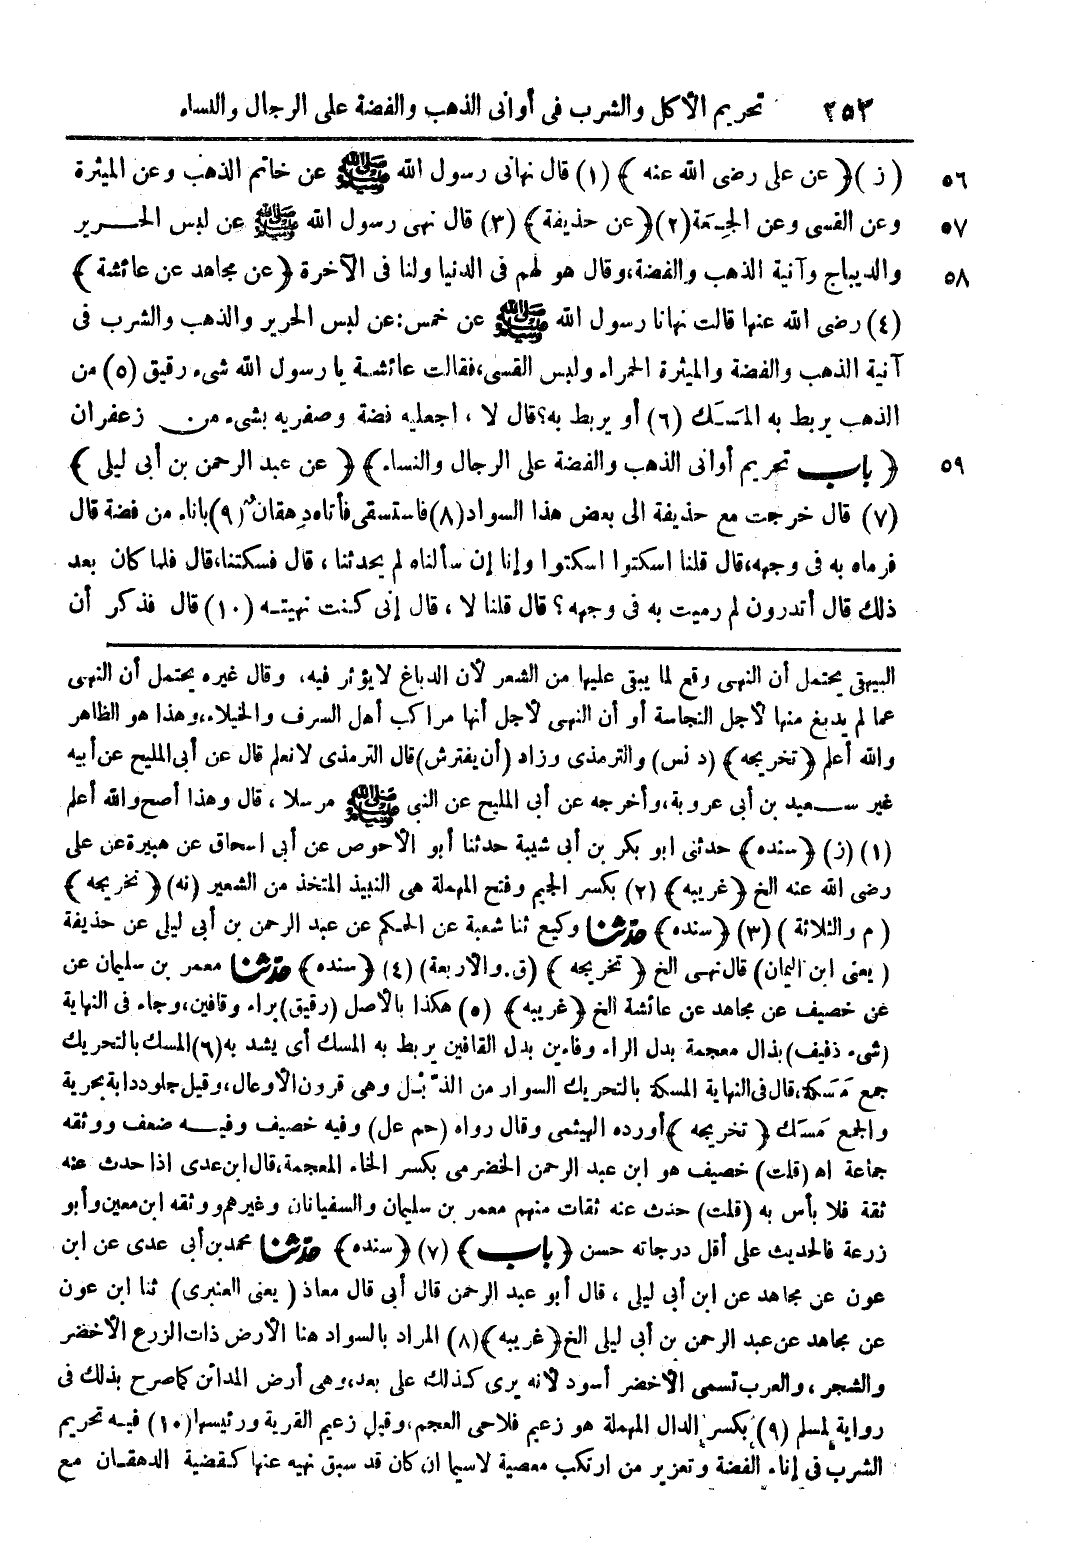 ٢٥٣ تحريم الأكل والشرب فى أوانى الذهب والفضة على الرجال والنساء
٥٦ (ز) ﴿عن على رضى الله عنه﴾ (١) قال نهانى رسول الله ﷺ عن خاتم الذهب وعن الميثرة
٥٧ وعن القسى وعن الجِعَة (٢) ﴿عن حذيفة﴾ (٣) قال نهى رسول الله ﷺ عن لبس الحرير
٥٨ والديباج وآنية الذهب والفضة، وقال هو لهم فى الدنيا ولنا فى الآخرة ﴿عن مجاهد عن عائشة﴾
(٤) رضى الله عنها قالت نهانا رسول الله ﷺ عن خمس: عن لبس الحرير والذهب والشرب فى
آنية الذهب والفضة والميثرة الحمراء ولبس القسى، فقالت عائشة يا رسول الله شىء رقيق (٥) من
الذهب يربط به المَسَك (٦) أو يربط به؟ قال لا، اجعليه فضة وصفريه بشىء من زعفران
٥٩ ﴿باب تحريم أوانى الذهب والفضة على الرجال والنساء﴾ ﴿عن عبد الرحمن بن أبى ليلى﴾
(٧) قال خرجت مع حذيفة الى بعض هذا السواد (٨) فاستسقى فأتاه دِهقان (٩) باناء من فضة قال
فرماه به فى وجهه، قال قلنا اسكتوا اسكتوا وإنا إن سألناه لم يحدثنا، قال فسكتنا، قال فلما كان بعد
ذلك قال أتدرون لم رميت به فى وجهه؟ قال قلنا لا، قال إنى كنت نهيته (١٠) قال فذكر أن
البيهقى يحتمل أن النهى وقع لما يبقى عليها من الشعر لأن الدباغ لايؤثر فيه، وقال غيره يحتمل أن النهى
عما لم يدبغ منها لأجل النجاسة أو أن النهى لأجل أنها مراكب أهل السرف والخيلاء، وهذا هو الظاهر
والله أعلم ﴿تخريجه﴾ (د نس) والترمذى وزاد (أن يفترش) قال الترمذى لانعلم قال عن أبى المليح عن أبيه
غير سعيد بن أبى عروبة، وأخرجه عن أبى المليح عن النبى ﷺ مرسلا، قال وهذا أصح والله أعلم
(١) (ز) ﴿سنده﴾ حدثنى ابو بكر بن أبى شيبة حدثنا أبو الأحوص عن أبى اسحاق عن هبيرة عن على
رضى الله عنه الخ ﴿غريبه﴾ (٢) بكسر الجيم وفتح المهملة هى النبيذ المتخذ من الشعير (نه) ﴿تخريجه﴾
(م والثلاثة) (٣) ﴿سنده﴾ حدّثنا وكيع ثنا شعبة عن الحكم عن عبد الرحمن بن أبى ليلى عن حذيفة
(يعنى ابن اليمان) قال نهى الخ ﴿تخريجه﴾ (ق. والاربعة) (٤) ﴿سنده﴾ حدّثنا معمر بن سليمان عن
عن خصيف عن مجاهد عن عائشة الخ ﴿غريبه﴾ (٥) هكذا بالأصل (رقيق) براء وقافين، وجاء فى النهاية
(شىء ذفيف) بذال معجمة بدل الراء وفاءين بدل القافين يربط به المسك أى يشد به (٦) المسك بالتحريك
جمع مَسَكة، قال فى النهاية المسكة بالتحريك السوار من الذَّبْل وهى قرون الأوعال، وقيل جلود دابة بحرية
والجمع مَسَك ﴿تخريجه﴾ أورده الهيثمى وقال رواه (حم عل) وفيه خصيف وفيه ضعف ووثقه
جماعة اه (قلت) خصيف هو ابن عبد الرحمن الخضرمى بكسر الخاء المعجمة، قال ابن عدى اذا حدث عنه
ثقة فلا بأس به (قلت) حدث عنه ثقات منهم معمر بن سليمان والسفيانان وغيرهم ووثقه ابن معين وأبو
زرعة فالحديث على أقل درجاته حسن ﴿باب﴾ (٧) ﴿سنده﴾ حدّثنا محمد بن أبى عدى عن ابن
عون عن مجاهد عن ابن أبى ليلى، قال أبو عبد الرحمن قال أبى قال معاذ (يعنى العنبرى) ثنا ابن عون
عن مجاهد عن عبد الرحمن بن أبى ليلى الخ ﴿غريبه﴾ (٨) المراد بالسواد هنا الأرض ذات الزرع الأخضر
والشجر، والعرب تسمى الأخضر أسود لأنه يرى كذلك على بعد، وهى أرض المدائن كما صرح بذلك فى
رواية لمسلم (٩) بكسر الدال المهملة هو زعيم فلاحى العجم، وقيل زعيم القرية ورئيسها (١٠) فيه تحريم
الشرب فى إناء الفضة وتعزير من ارتكب معصية لاسيما ان كان قد سبق نهيه عنها كقضية الدهقان مع